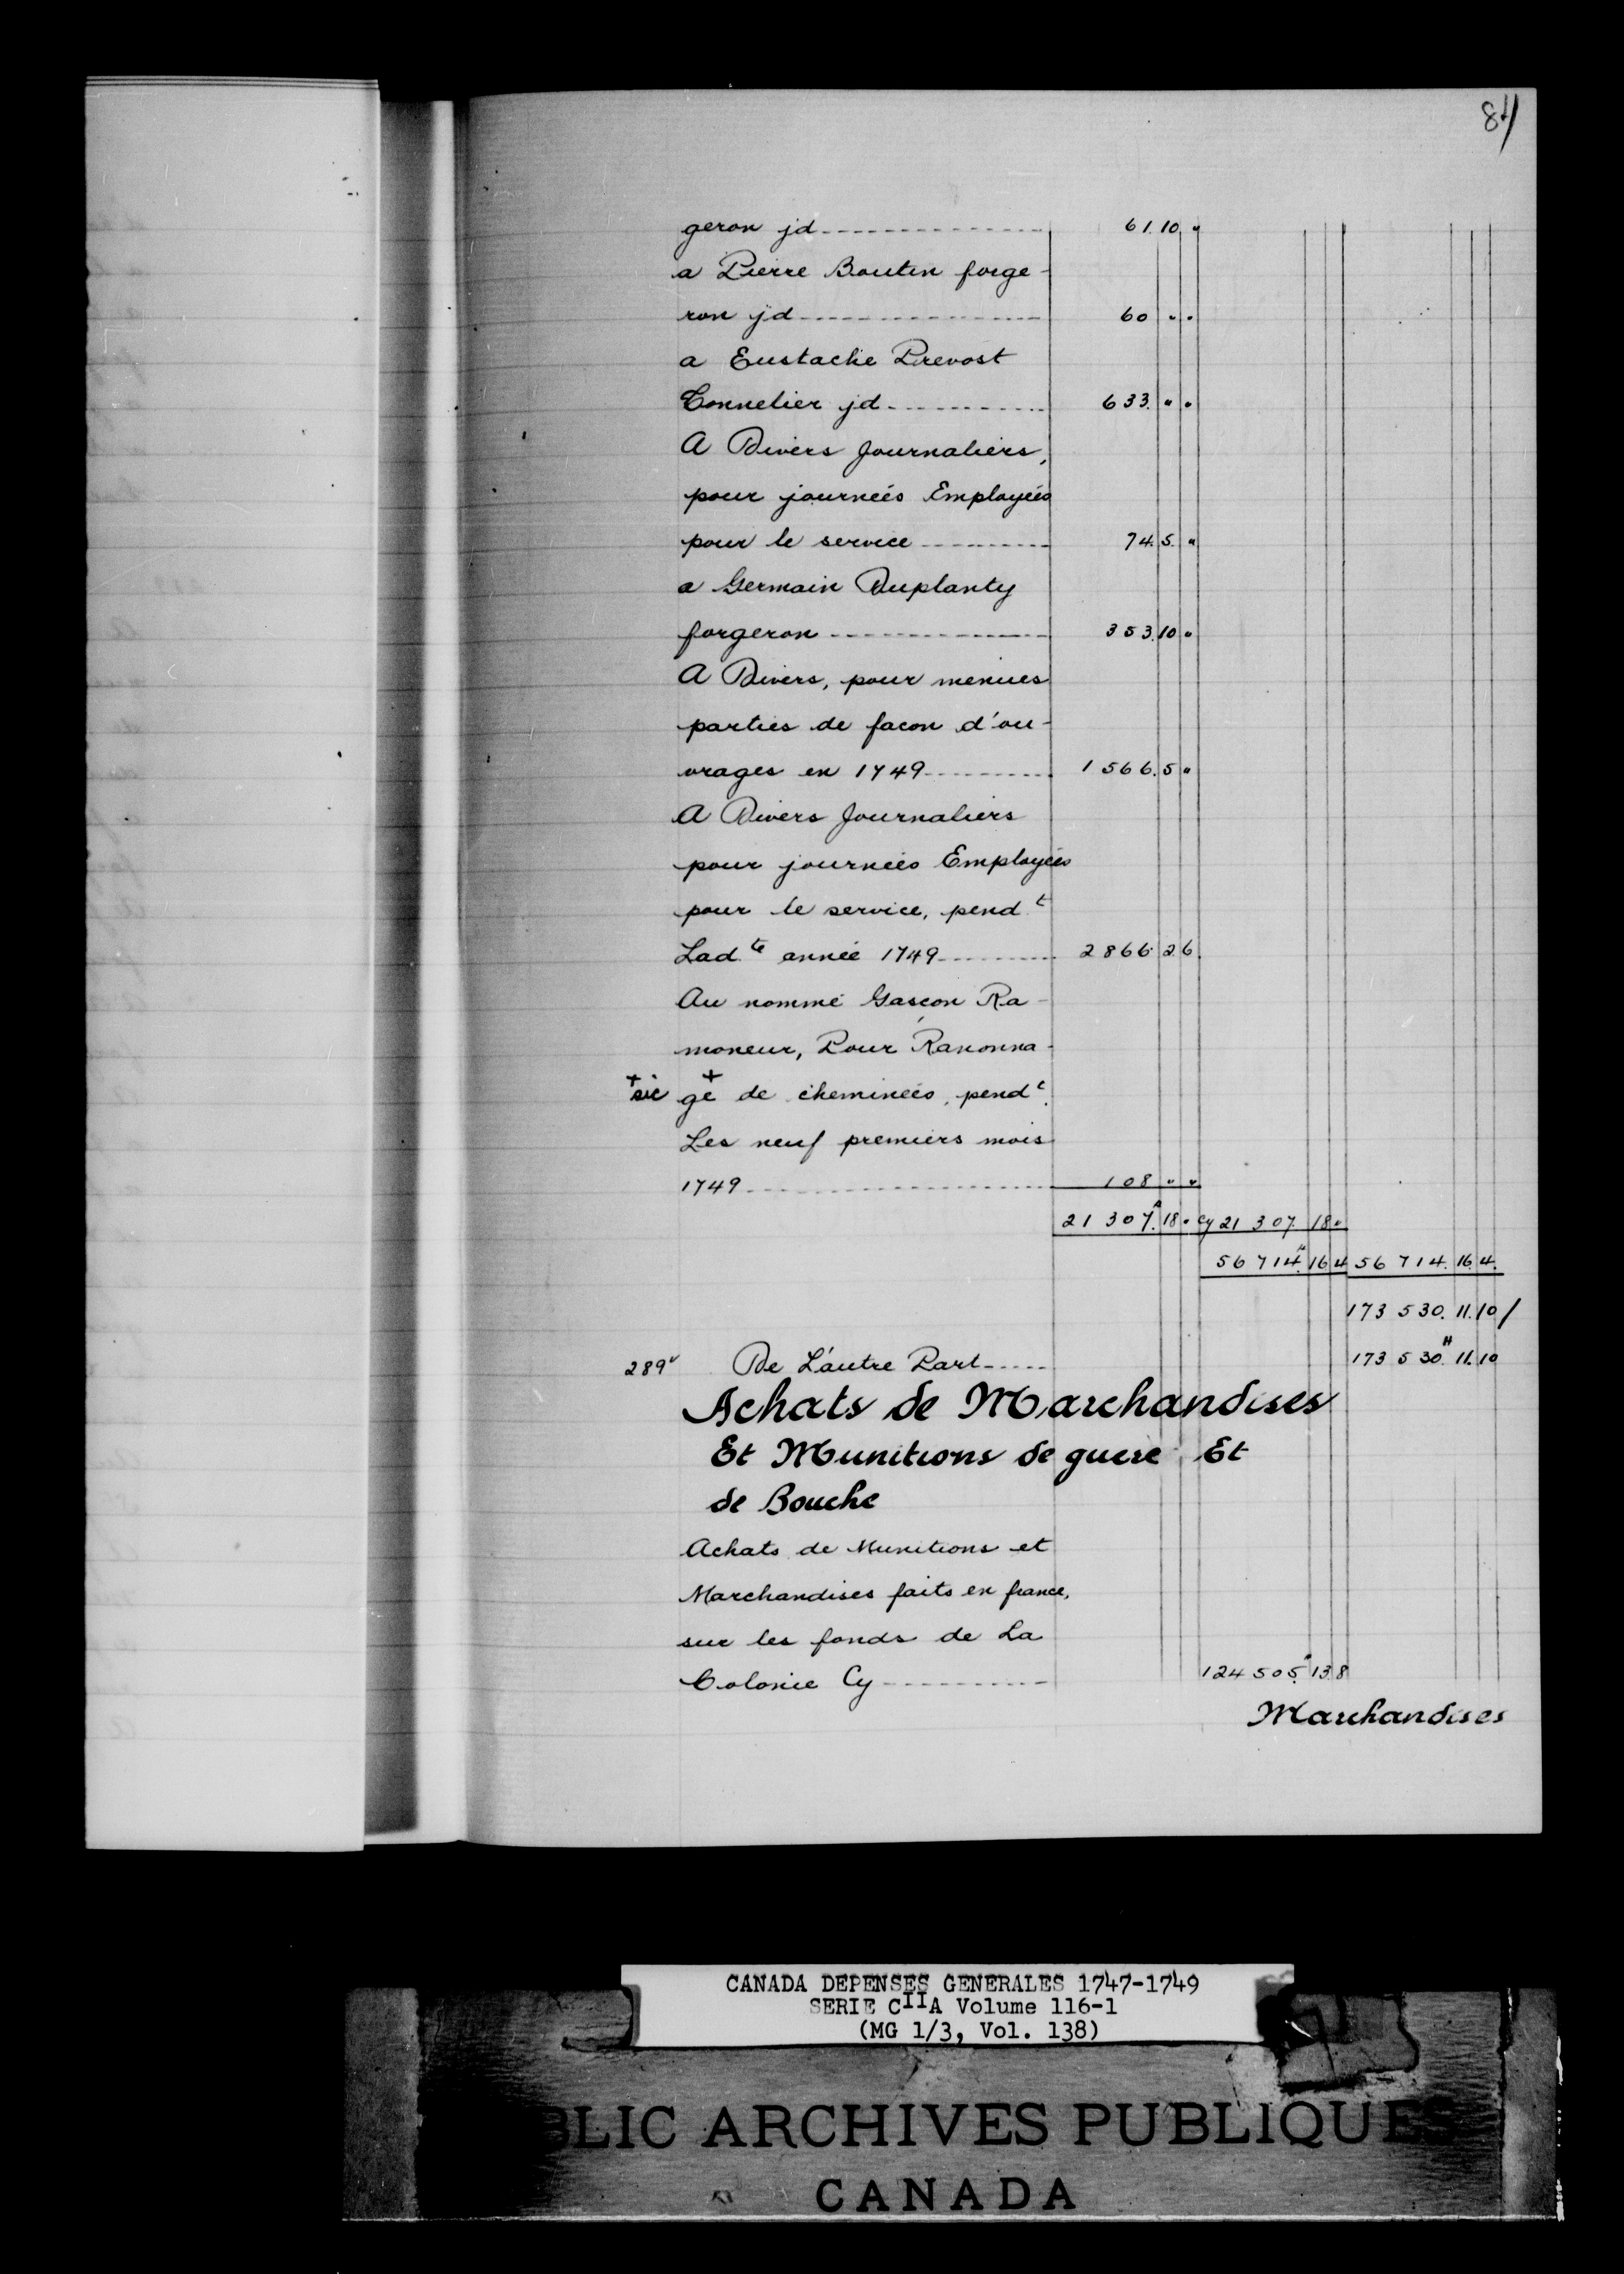 84
geron jd ---------- 61. 10. "
a Pierre Boutin forge-
ron jd ---------- 60 " "
a Eustache Prevost
Tonnelier jd ---------- 633. " "
A Divers Journaliers,
pour journées Employées
pour le service ---------- 74. 5. "
a Germain Duplanty
forgeron ---------- 353. 10 "
A Divers, pour menues
parties de facon d'ou-
vrages en 1749 ---------- 1566. 5 "
A Divers Journaliers
pour journées Employées
pour le service, pend.t
Lad.te année 1749 ---------- 2866. 2 6.
Au nommé Gascon Ra-
moneur, Pour Ranonna-
+sic ge+ de cheminées, pend.t
Les neuf premiers mois
1749 ---------- 108 " "
21 307.# 18 " Cy 21 307. 18 "
56 714.# 16 4 56 714. 16. 4.
173 530. 11. 10 /
289v De L'autre Part ----- 173 530.# 11. 10
Achats de Marchandises
Et Munitions de guere Et
de Bouche
Achats de Munitions et
Marchandises faits en france,
sur les fonds de La
Colonie Cy ---------- 124 505.# 13. 8
Marchandises
CANADA DEPENSES GENERALES 1747-1749
SERIE CIIA Volume 116-1
(MG 1/3, Vol. 138)
BLIC ARCHIVES PUBLIQUES
CANADA